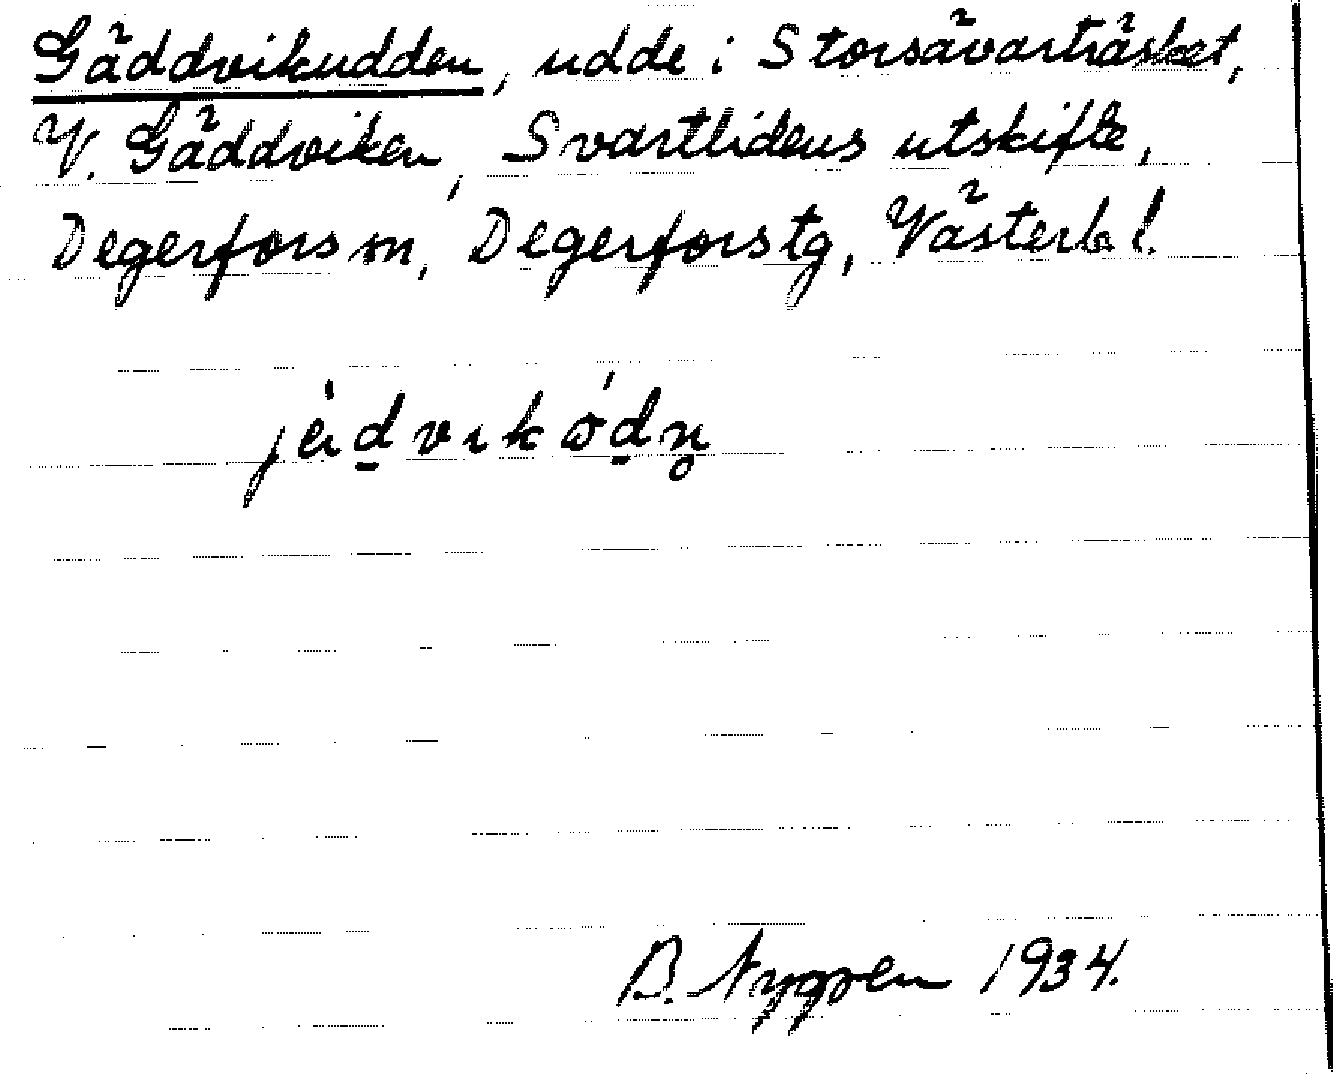 Gäddvikudden, udde i Storsävarträsket,
V. Gäddviken, Svartlidens utskifte,
Degerfors sn, Degerfors tg, Västerb l.
B. Nygren 1934.